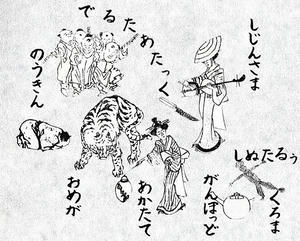 しじんさま
でるたあたっく
のうきん
しぬたるぅ
くろま
がんぽっど
あかたて
おめが